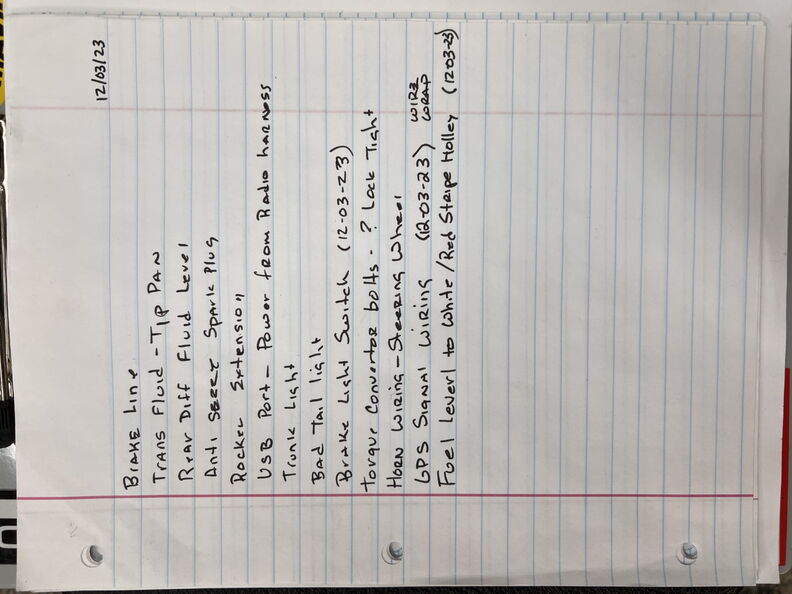 12/03/23
Brake Line
Trans Fluid - Tip Pan
Rear Diff Fluid Level
Anti Seeze Spark Plug
Rocker Extension
USB Port - Power from Radio harness
Trunk Light
Bad Tail light
Brake Light Switch (12-03-23)
Torque Convertor bolts - ? Lock Tight
Horn Wiring - Steering Wheel
GPS Signal Wiring (12-03-23) Wire Wrap
Fuel Level to White/Red Stripe Holley (12-03-23)